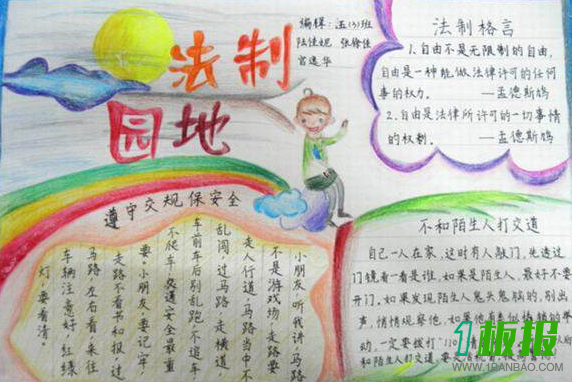 法制
园地
编辑:五(3)班
陆佳妮 张徐佳
宫逸华
法制格言
1.自由不是无限制的自由,
自由是一种能做法律许可的任何
事的权力。 ——孟德斯鸠
2.自由是法律所许可的一切事情
的权制。 ——孟德斯鸠
遵守交规保安全
小朋友听我讲,马路
不是游戏场,走路要
走人行道,马路当中不
乱闯,过马路,走横道,
车前车后别乱跑,不追车
不爬车,交通安全最重
要,小朋友,要记牢,
走路不看书和报,过
马路左右看,来往
车辆注意好,红绿
灯,要看清。
不和陌生人打交道
自己一人在家,这时有人敲门,先透过
门镜看一看是谁,如果是陌生人,最好不要
开门,如果发现陌生人鬼头鬼脑的,别出
声,悄悄观察他,如果他有的举
动,一定要拨打"110"
和陌生人打交道,要
1板报
WWW.1BANBAO.COM